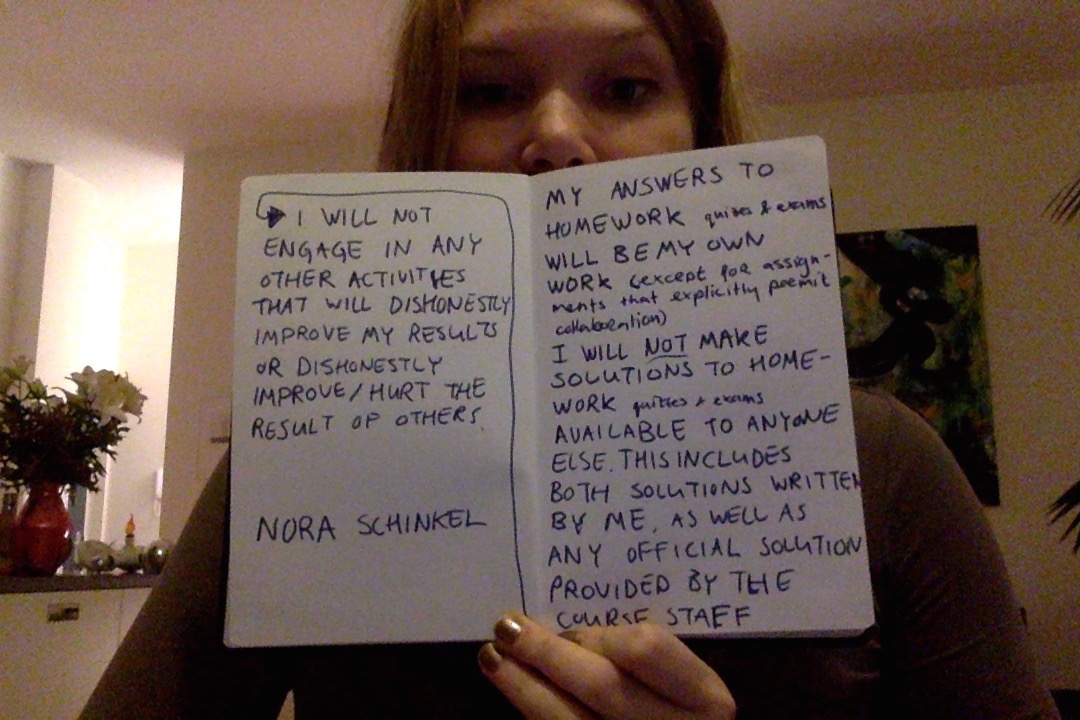 MY ANSWERS TO
HOMEWORK quizes & exams
WILL BE MY OWN
WORK (except for assign-
ments that explicitly permit
collaboration)
I WILL NOT MAKE
SOLUTIONS TO HOME-
WORK quizzes & exams
AVAILABLE TO ANYONE
ELSE. THIS INCLUDES
BOTH SOLUTIONS WRITTEN
BY ME, AS WELL AS
ANY OFFICIAL SOLUTION
PROVIDED BY THE
COURSE STAFF
I WILL NOT
ENGAGE IN ANY
OTHER ACTIVITIES
THAT WILL DISHONESTLY
IMPROVE MY RESULTS
OR DISHONESTLY
IMPROVE/HURT THE
RESULT OF OTHERS.
NORA SCHINKEL